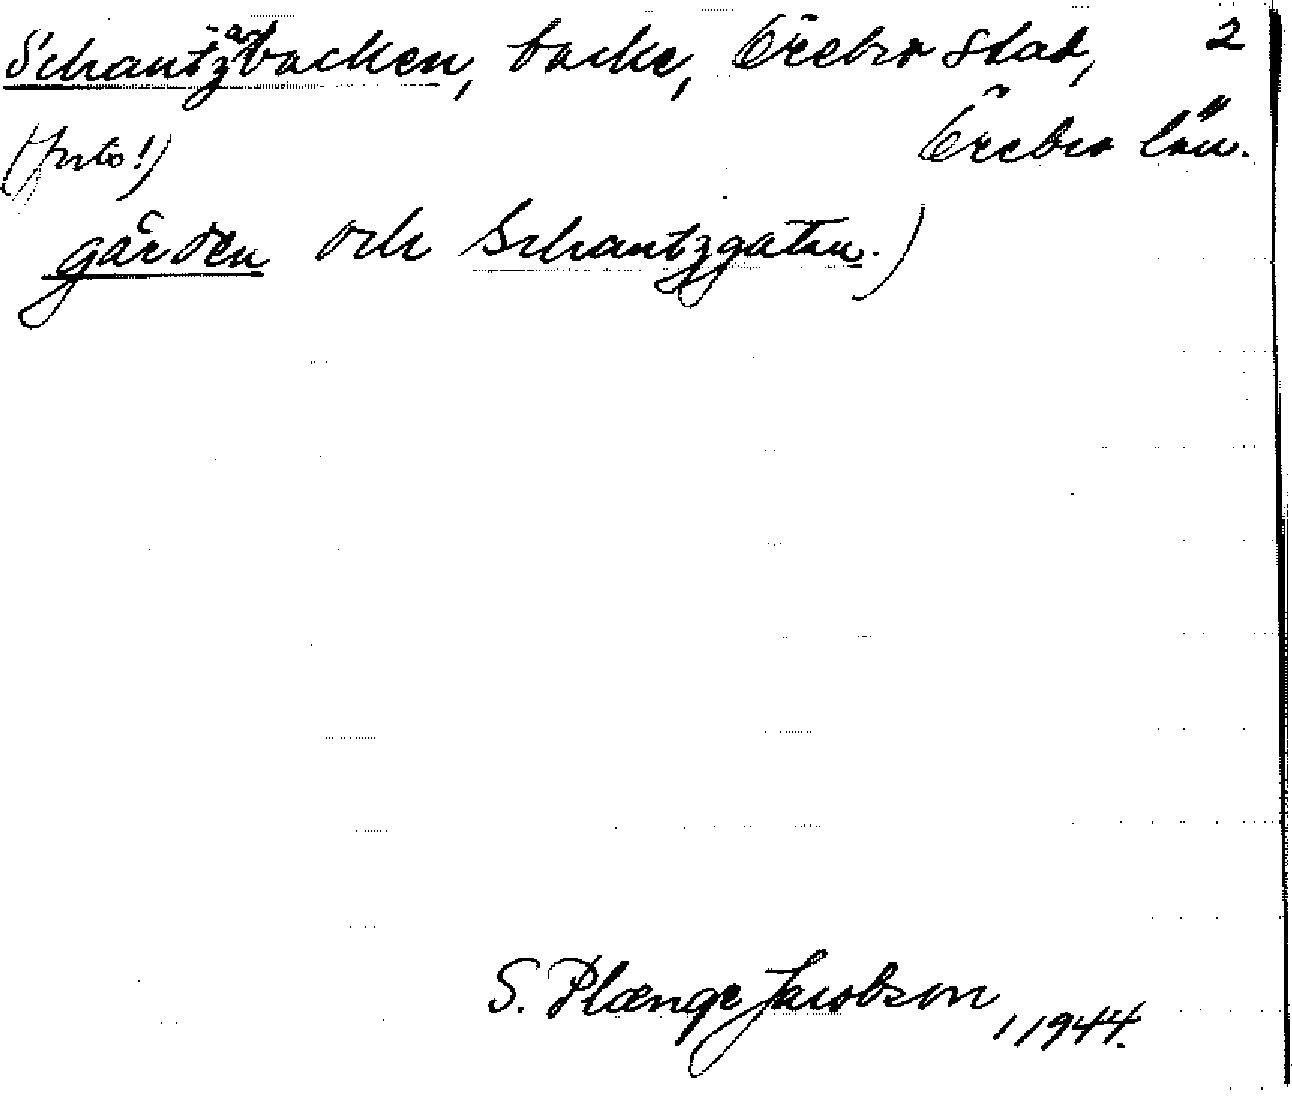 Schantzbacken, backe, Örebro stad, 2
Örebro län.
gården och Schantzgatan.)
S. Plænge Jacobson, 1944.